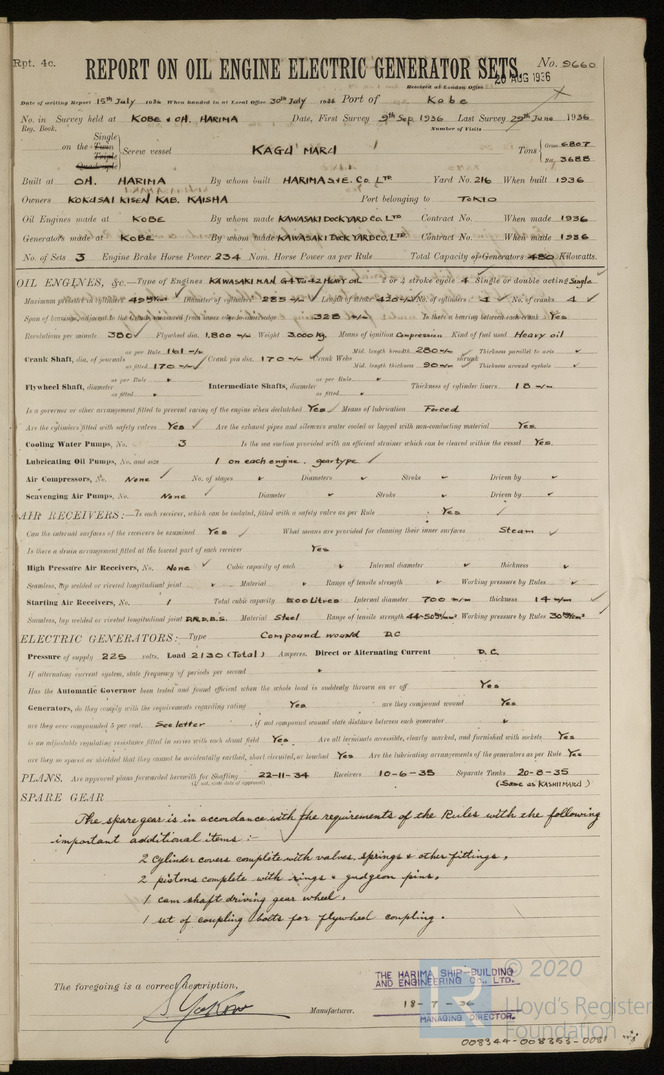 Rpt. 4c.
REPORT ON OIL ENGINE ELECTRIC GENERATOR SETS.
No. 9660
20 AUG 1936
Received at London Office
Date of writing Report 15th July 1936 When handed in at Local Office 30th July 1936 Port of Kobe
No. in Survey held at KOBE & OH. HARIMA Date, First Survey 9th Sep. 1936 Last Survey 29th June 1936
Reg. Book. Number of Visits
on the Single Twin Triple Quadruple Screw vessel KAGU MARU Tons Gross 6807 Net 3688
Built at OH. HARIMA By whom built HARIMA S&E. Co. LTD Yard No. 216 When built 1936
Owners KOKUSAI KISEN KAB. KAISHA Port belonging to TOKIO
Oil Engines made at KOBE By whom made KAWASAKI DOCKYARD CO. LTD Contract No. When made 1936
Generators made at KOBE By whom made KAWASAKI DOCKYARD CO. LTD Contract No. When made 1936
No. of Sets 3 Engine Brake Horse Power 234 Nom. Horse Power as per Rule Total Capacity of Generators 480 Kilowatts.
OIL ENGINES, &c.—Type of Engines KAWASAKI MAN G4Vu 42 HEAVY OIL 2 or 4 stroke cycle 4 Single or double acting Single
Maximum pressure in cylinders Diameter of cylinders 285 m/m Length of stroke 420 m/m No. of cylinders 4 No. of cranks 4
Span of bearings, adjacent to the Crank, measured from inner edge to inner edge 328 m/m Is there a bearing between each crank Yes
Revolutions per minute 380 Flywheel dia. 1,800 m/m Weight 3,000 kg. Means of ignition Compression Kind of fuel used Heavy oil
Crank Shaft, dia. of journals as per Rule 161 m/m as fitted 170 m/m Crank pin dia. 170 m/m Crank Webs Mid. length breadth 280 m/m Mid. length thickness 90 m/m shrunk Thickness parallel to axis Thickness around eyehole
Flywheel Shaft, diameter as per Rule as fitted Intermediate Shafts, diameter as per Rule as fitted Thickness of cylinder liners 18 m/m
Is a governor or other arrangement fitted to prevent racing of the engine when declutched Yes Means of lubrication Forced
Are the cylinders fitted with safety valves Yes Are the exhaust pipes and silencers water cooled or lagged with non-conducting material Yes.
Cooling Water Pumps, No. 3 Is the sea suction provided with an efficient strainer which can be cleared within the vessel Yes.
Lubricating Oil Pumps, No. and size 1 on each engine. gear type
Air Compressors, No. None No. of stages Diameters Stroke Driven by
Scavenging Air Pumps, No. None Diameter Stroke Driven by
AIR RECEIVERS:—Is each receiver, which can be isolated, fitted with a safety valve as per Rule Yes
Can the internal surfaces of the receivers be examined Yes What means are provided for cleaning their inner surfaces Steam
Is there a drain arrangement fitted at the lowest part of each receiver Yes
High Pressure Air Receivers, No. None Cubic capacity of each Internal diameter thickness
Seamless, lap welded or riveted longitudinal joint Material Range of tensile strength Working pressure by Rules
Starting Air Receivers, No. 1 Total cubic capacity 500 Litres Internal diameter 700 m/m thickness 14 m/m
Seamless, lap welded or riveted longitudinal joint D.R.D.B.S. Material Steel Range of tensile strength 44-50 Working pressure by Rules 30
ELECTRIC GENERATORS:—Type Compound wound D.C
Pressure of supply 225 volts. Load 2130 (Total) Amperes. Direct or Alternating Current D.C.
If alternating current system, state frequency of periods per second
Has the Automatic Governor been tested and found efficient when the whole load is suddenly thrown on or off Yes
Generators, do they comply with the requirements regarding rating Yes are they compound wound Yes
are they over compounded 5 per cent. See letter, if not compound wound state distance between each generator
is an adjustable regulating resistance fitted in series with each shunt field Yes Are all terminals accessible, clearly marked, and furnished with sockets Yes
are they so spaced or shielded that they cannot be accidentally earthed, short circuited, or touched Yes Are the lubricating arrangements of the generators as per Rule Yes
PLANS. Are approved plans forwarded herewith for Shafting 22-11-34 Receivers 10-6-35 Separate Tanks 20-8-35
(If not, state date of approval) (Same as KASHII MARU)
SPARE GEAR
The spare gear is in accordance with the requirements of the Rules with the following
important additional items :-
2 cylinder covers complete with valves, springs & other fittings,
2 pistons complete with rings & gudgeon pins,
1 cam shaft driving gear wheel,
1 set of coupling bolts for flywheel coupling.
The foregoing is a correct description,
Manufacturer.
THE HARIMA SHIP-BUILDING
AND ENGINEERING CO., LTD.
18-7-36
MANAGING DIRECTOR.
© 2020
Lloyd's Register
Foundation
008344-008353-0081